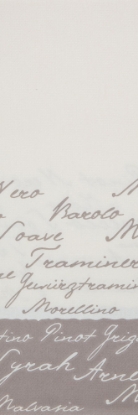 Nero M
Barolo
Soave M
Traminer
ne Gewürztramin
Morellino
tino Pinot Grig
Syrah Arne
Malvasia M